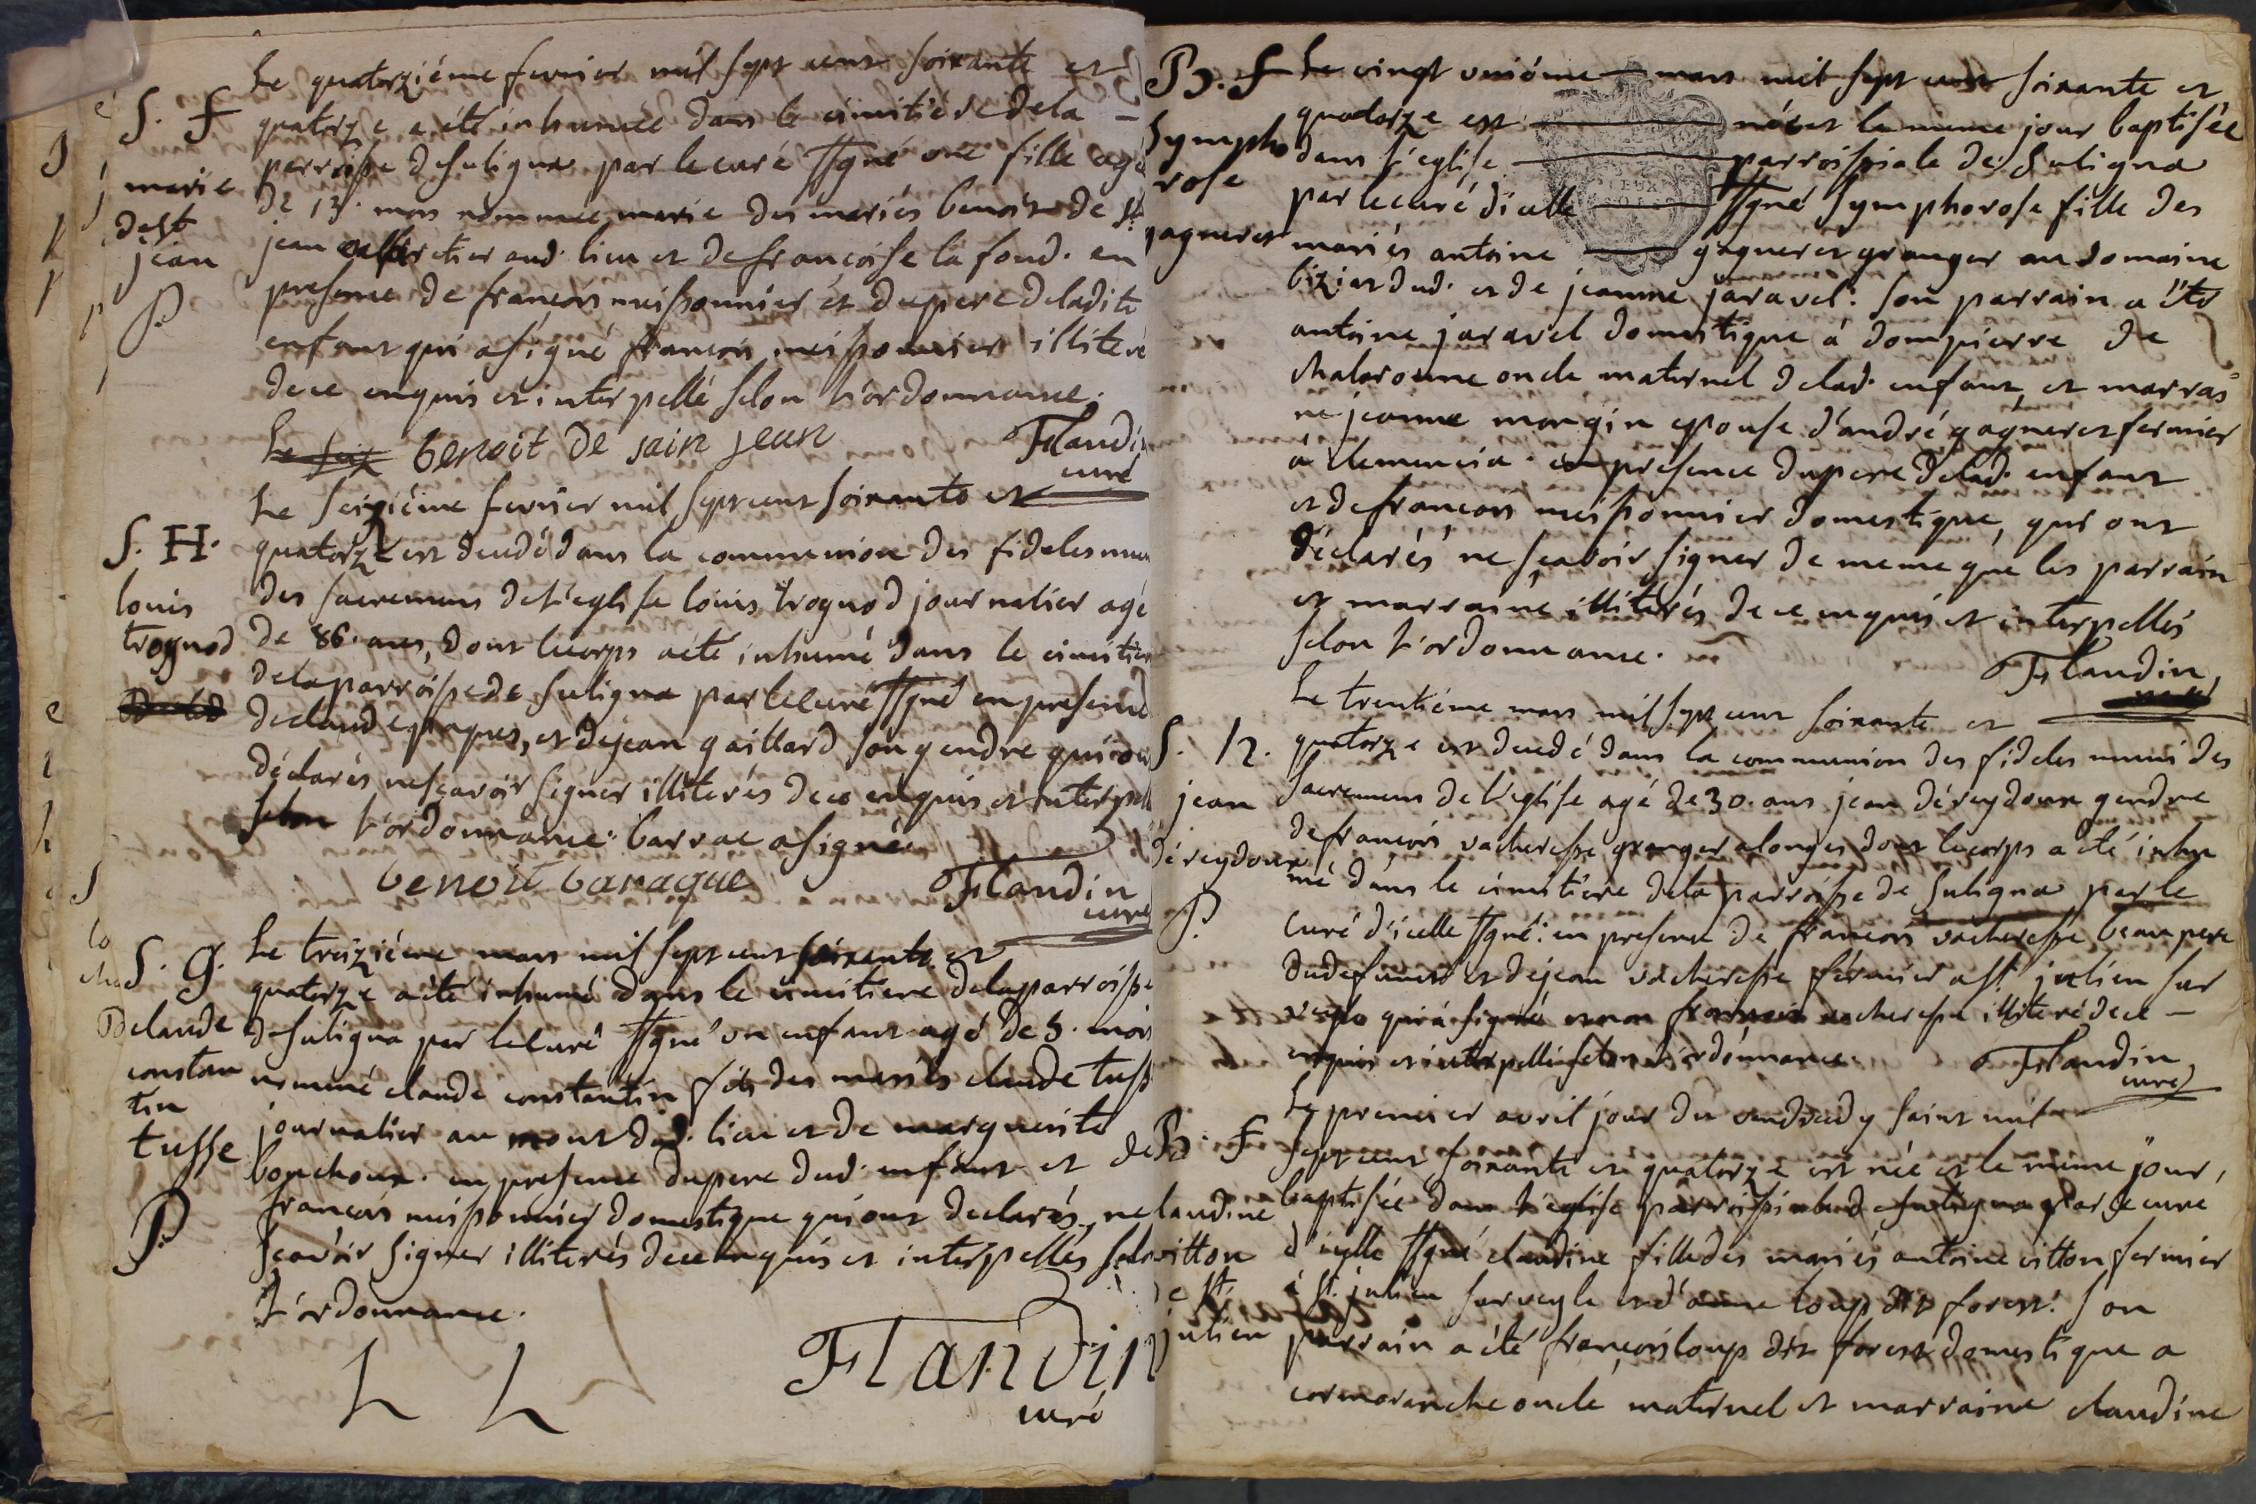 S. F
marie
de st
jean
P.
Le quatorziéme fevrier mil sept cent soixante et
quatorze a été inhumée dans le cimitiére dela
parroisse de suligna par le curé ssgné une fille agé
de 13. mois nommée marie des mariés benoit de st
jean cabaretier aud. lieu et de francoise la fond. en
presence de francois meissonnier et du pere deladite
enfant qui a signé francois meissonnier illiteré
de ce enquis et interpellé selon l'ordonnance.
benoit de sain jean
Flandin
curé
S. H.
louis
trognod
Le seiziéme fevrier mil sept cent soixante et
quatorze est decedé dans la communion des fideles muni
des sacremens de l'eglise louis trognod journalier agé
de 86. ans, dont le corps a été inhumé dans le cimitiére
dela parroisse de suligna par le curé ssgné en presence
de claude paques, et de jean gaillard son gendre qui ont
déclarés ne sçavoir signer illiterés de ce enquis et interpellé
selon l'ordonnance. barrac a signé
benoit baraque
Flandin
curé
S. G.
claude
constan
tin
tusse
P.
Le treiziéme mars mil sept cent soixante et
quatorze a été inhumé dans le cimitiere dela parroisse
de suligna par le curé ssgné un enfant agé de 5. mois
nommé claude constantin fils des mariés claude tusse
journalier au mont dud. lieu et de marguerite
bouchoux. en presence du pere dud. enfant et de
francois meissonnier domestique qui ont declarés ne
sçavoir signer illiterés de ce enquis et interpellés selon
l'ordonnance.
Flandin
curé
B. F
Sympho
rose
gagneret
Le vingt uniéme mars mil sept cent soixante et
quatorze est née et le meme jour baptisée
dans l'eglise parroissiale de Suligna
par le curé d'icelle ssgné symphorose fille des
mariés antoine gagneret granger au domaine
biziat dud. et de jeanne jaravel: son parrain a été
antoine jaravel domestique á dompierre de
chalaronne oncle maternel de lad. enfant, et marrai
ne jeanne mangin epouse d'andré gagneret fermier
á clemencia. en presence du pere de lad. enfant
et de francois meissonnier domestique, qui ont
déclarés ne sçavoir signer de meme que les parrain
et marraine illiterés de ce enquis et interpellés
selon l'ordonnance.
Flandin
curé
S. 12.
jean
déreydoux
P.
Le trentiéme mars mil sept cent soixante et
quatorze est decedé dans la communion des fideles muni des
sacremens de l'eglise agé de 30. ans jean déreydoux gendre
de francois vacheresse granger a longes dont le corps a été inhu
mé dans le cimitiere dela parroisse de suligna par le
curé d'icelle ssgné: en presence de francois vacheresse beau pere
du defunct et de jean vacheresse fermier a st. julien sur
veyle qui a signé et non francois vacheresse illiteré de ce
enquis et interpellé selon l'ordonnance.
Flandin
curé
B. F
claudine
vitton
de st.
julien
Le premier avril jour du vendredy saint mil
sept cent soixante et quatorze est née et le meme jour,
baptisée dans l'eglise parroissiale de suligna par le curé
d'icelle ssgné claudine fille des mariés antoine vitton fermier
á st. julien sur veyle et d'anne loup dit forest. son
parrain a été francois loup dit forest domestique a
cormoranche oncle maternel et marraine claudine